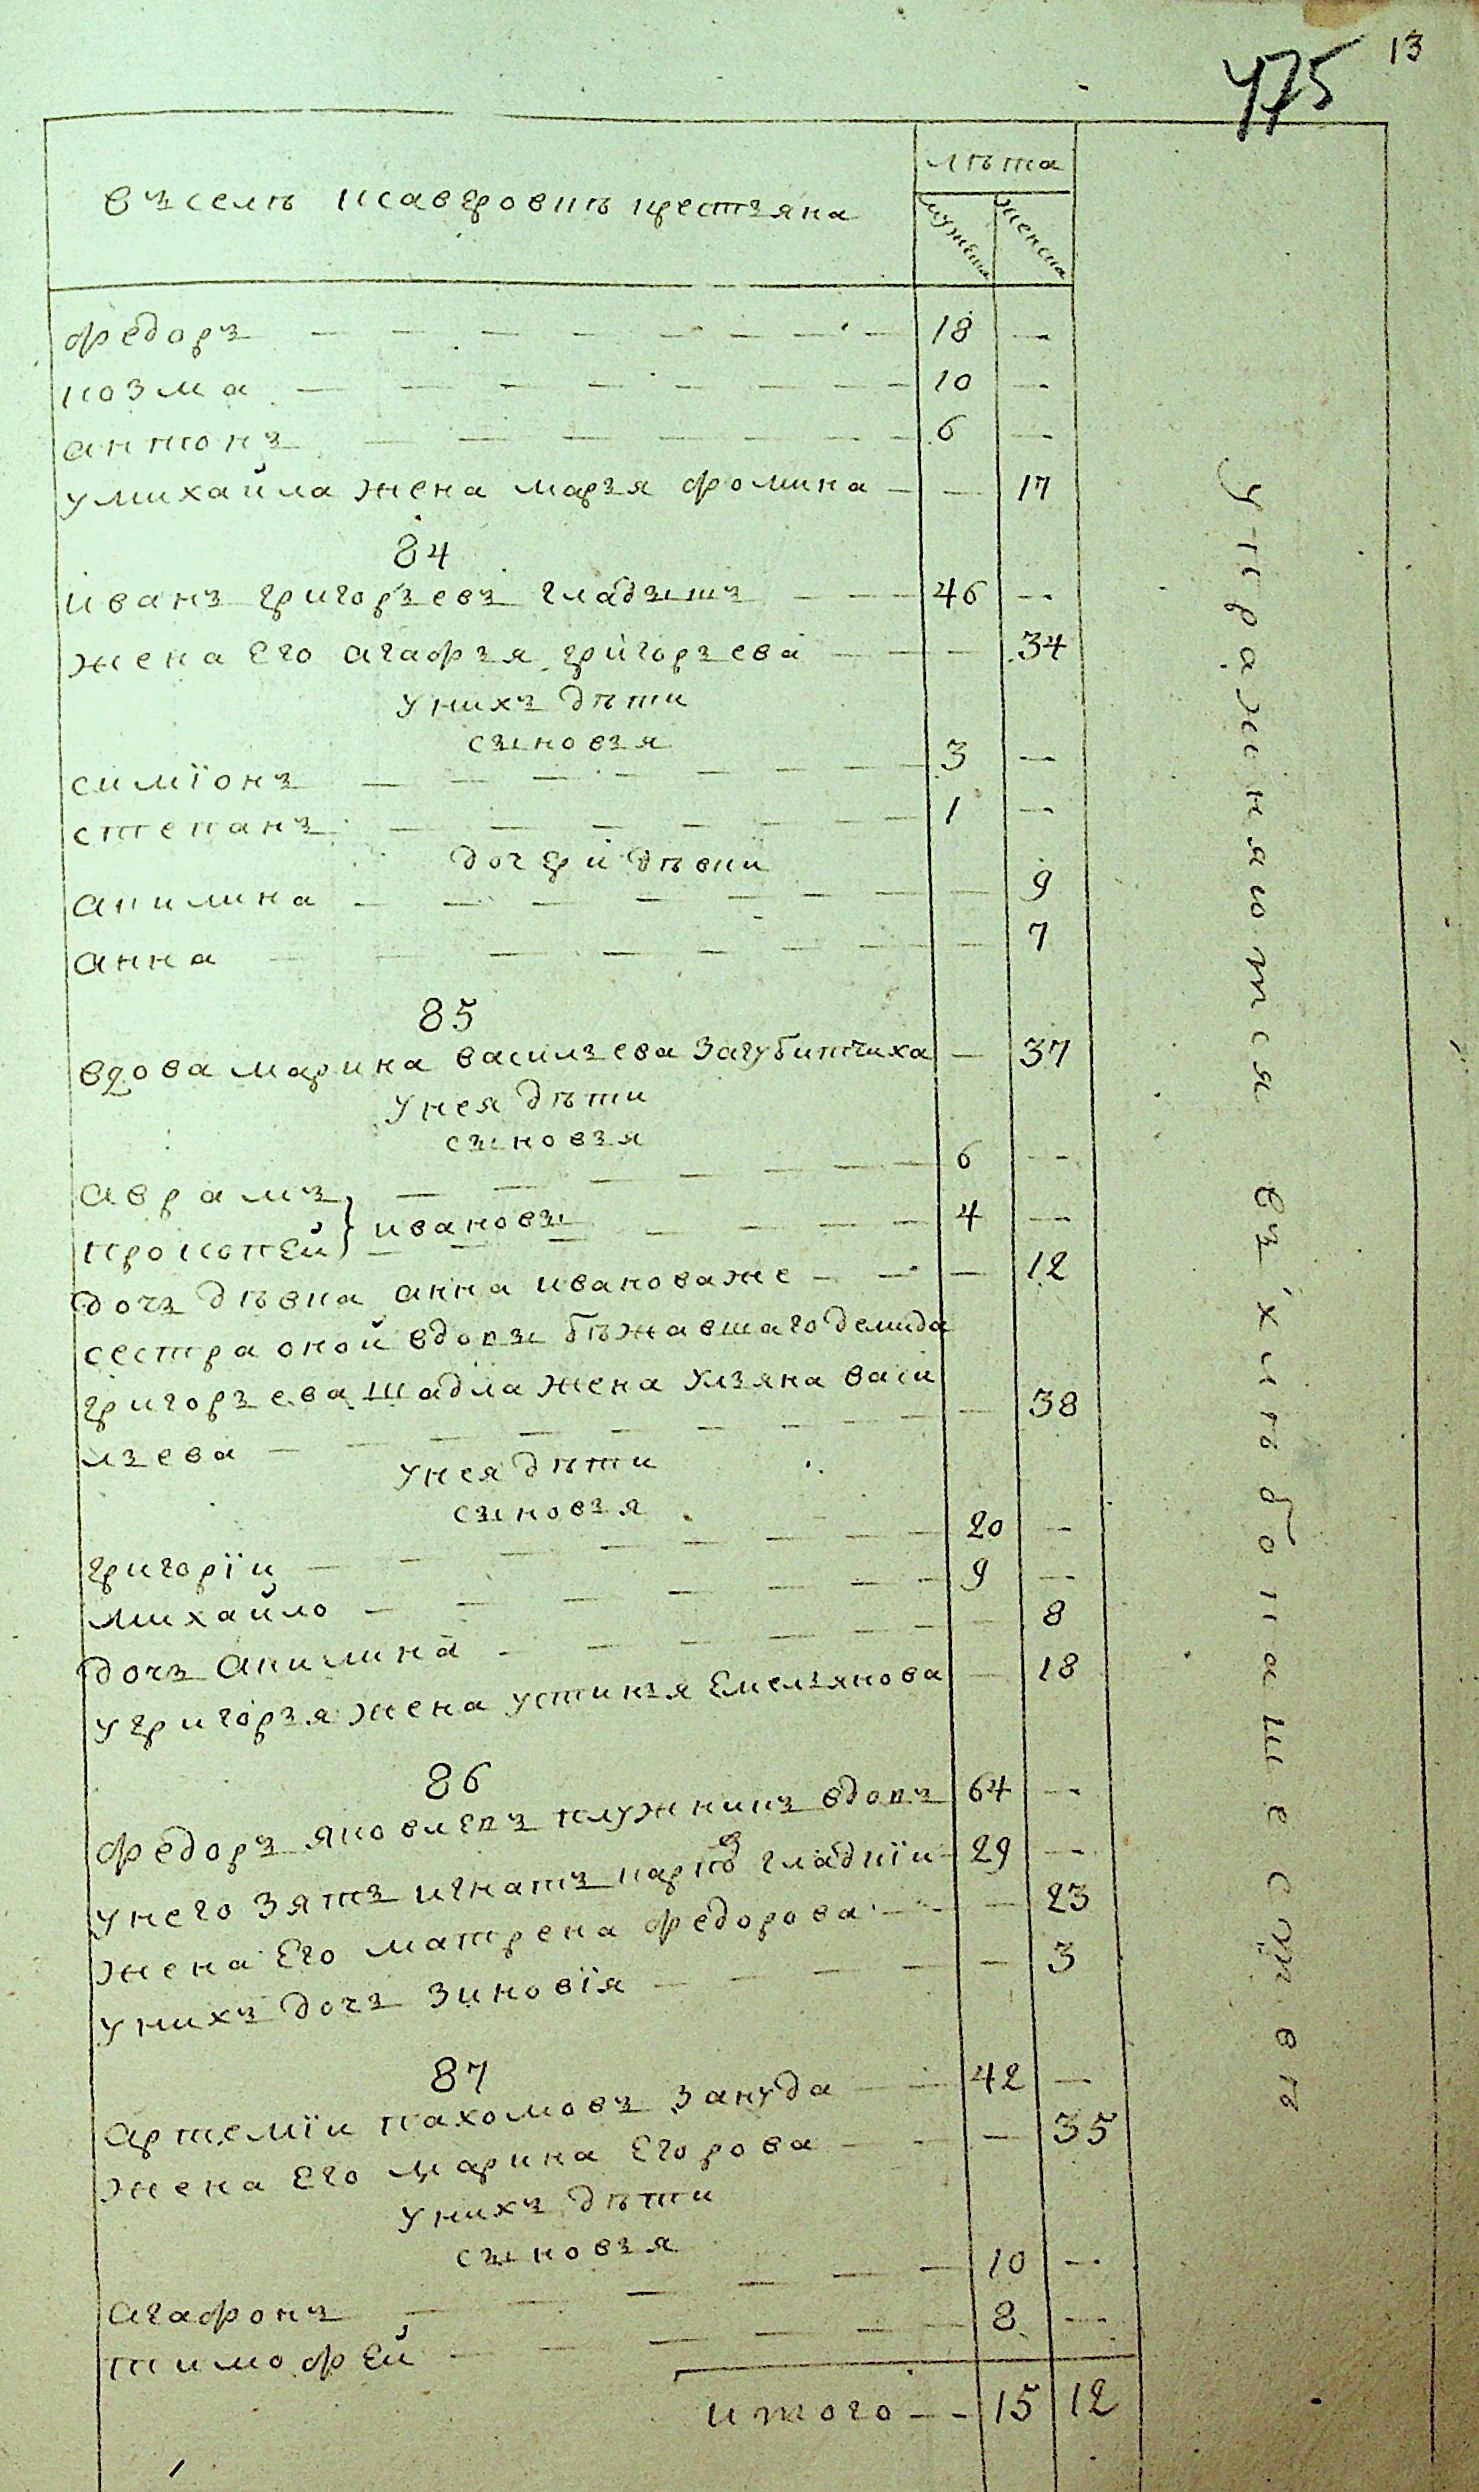 13
475
въ селѣ Ксавэровкѣ крестьяна
лѣта
мужеска
женска
федоръ — 18 —
козма — 10 —
антонъ — 6 —
у михайла жена марья фомина — — 17
84
иванъ григорьевъ гладышъ — 46 —
жена Его агафья григорьева — — 34
у нихъ дѣти
сыновья
симїонъ — 3 —
степанъ — 1 —
дочери дѣвки
акилина — — 9
анна — — 7
85
вдова марина васильева загубипятиха — 37
у нея дѣти
сыновья
аврамъ — 6 —
прокопЕй } ивановы — 4 —
дочь дѣвка анна иванова же — — 12
сестра оной вдовы бѣжавшаго демида
григорьева шадла жена ульяна васи
льева — — 38
у нея дѣти
сыновья
григорїи — 20 —
михайло — 9 —
дочь акилина — — 8
у григорья жена устинья Емельянова — 18
86
федоръ яковлевъ плужникъ вдовъ 64 —
у него зять игнатъ карповъ гладкїи 29 —
жена Его матрена федорова — — 23
у нихъ дочь зиновїя — — 3
87
артемїи пахомовъ зануда — 42 —
жена Его марина Егорова — — 35
у нихъ дѣти
сыновья
агафонъ — 10 —
тимофЕй — 8 —
итого — 15 12
упражняются въ хлѣбопашествѣ